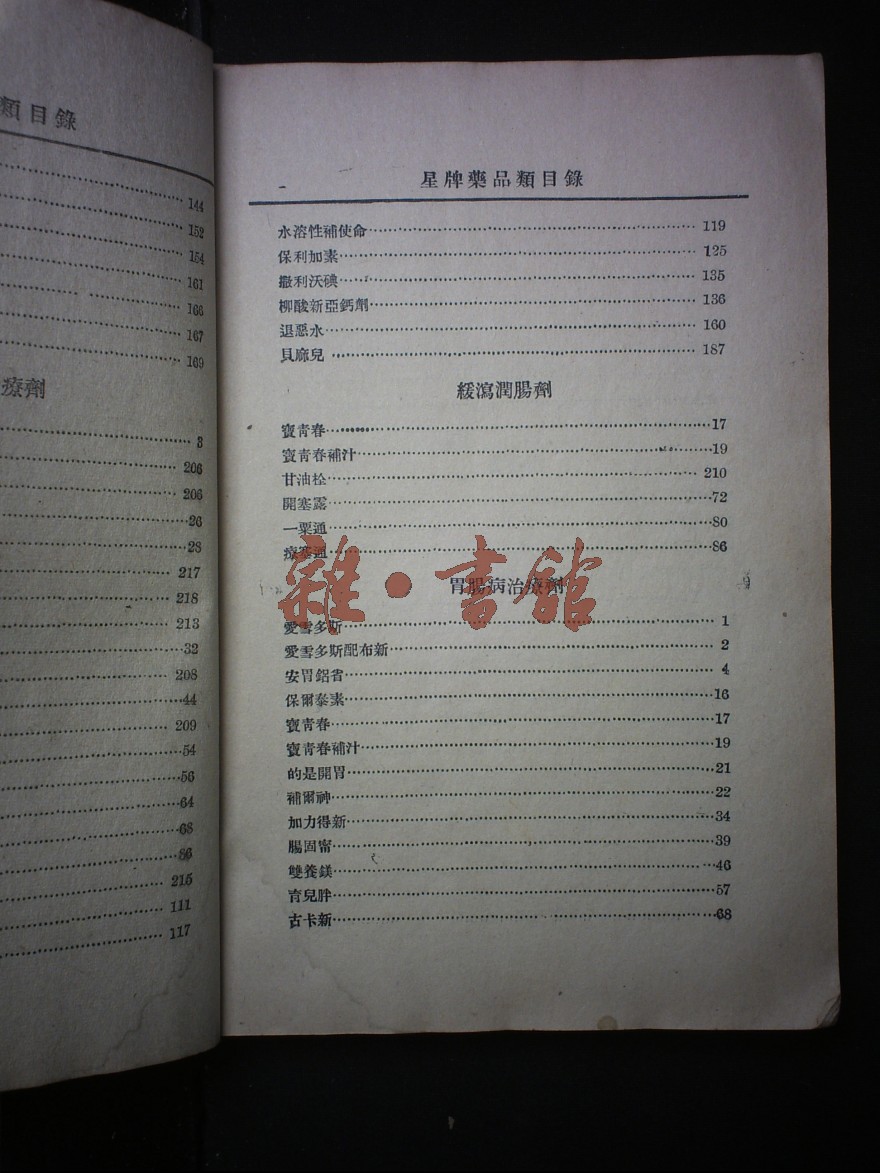 類目錄
144
152
154
161
166
167
169
療劑
3
206
206
26
28
217
218
213
32
208
44
209
54
56
64
68
86
215
111
117
星牌藥品類目錄
水溶性補使命 119
保利加素 125
撒利沃碘 135
柳酸新亞鈣劑 136
退惡水 160
貝麻兒 187
緩瀉潤腸劑
寶青春 17
寶青春補汁 19
甘油栓 210
開塞露 72
一粟通 80
療塞通 86
雜·書館
胃腸病治療劑
愛雪多斯 1
愛雪多斯配布新 2
安胃鋁省 4
保爾泰素 16
寶青春 17
寶青春補汁 19
的是開胃 21
補爾神 22
加力得新 34
腸固甯 39
雙養鎂 46
育兒胖 57
古卡新 68